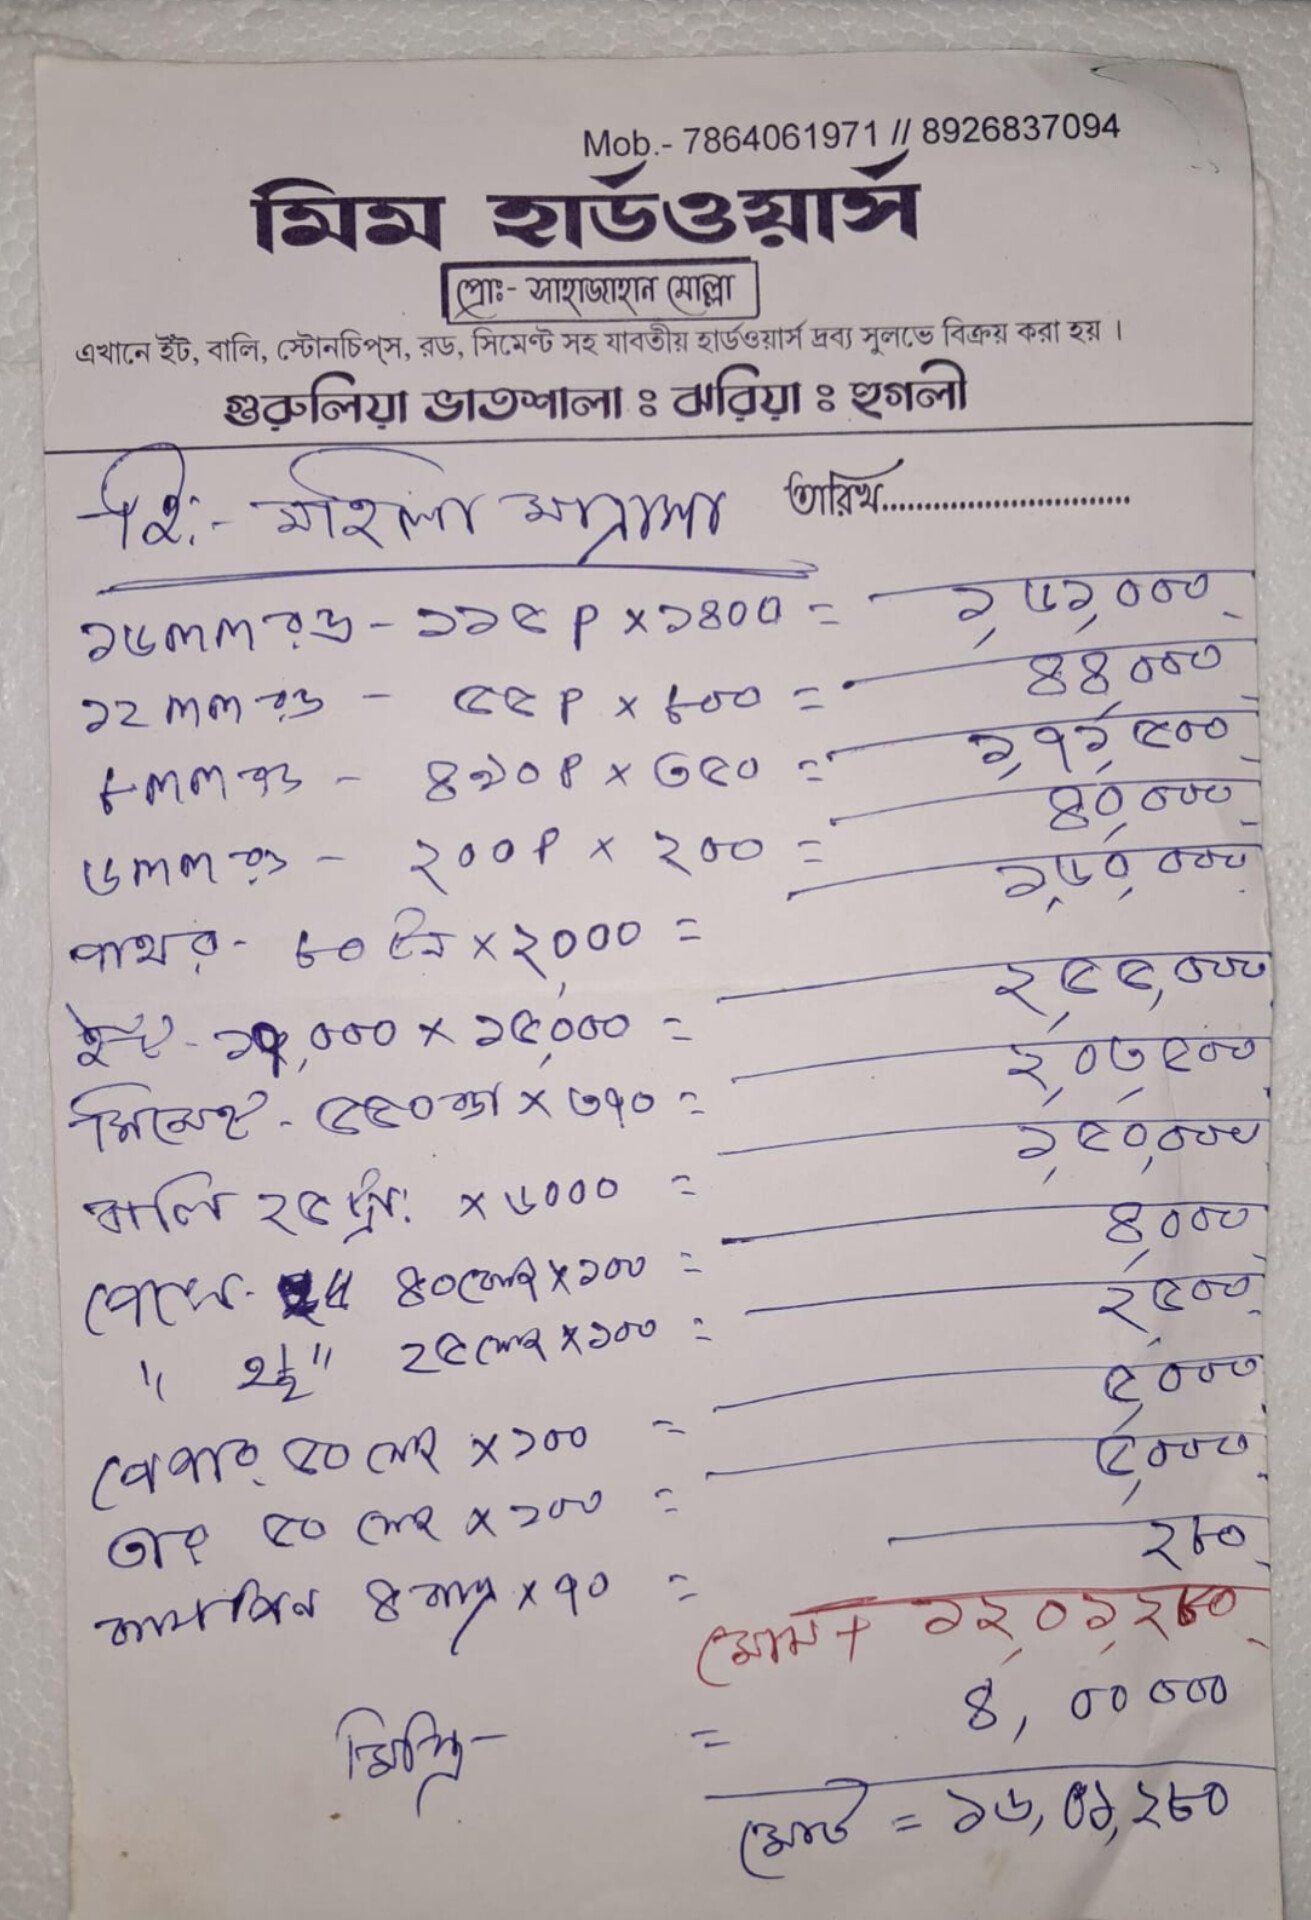 Mob.- 7864061971 // 8926837094
মিম হার্ডওয়ার্স
প্রোঃ- সাহাজাহান মোল্লা
এখানে ইঁট, বালি, স্টোনচিপ্স, রড, সিমেন্ট সহ যাবতীয় হার্ডওয়ার্স দ্রব্য সুলভে বিক্রয় করা হয় ।
গুরুলিয়া ভাতশালা ঃ ঝরিয়া ঃ হুগলী
মহিলা মাদ্রাসা তারিখ..............................
১৬ mm রড - ১১৫ P x ১৪00 = ১,৬১,০০০
১২ mm রড - ৫৫ P x ৮০০ = ৪৪,০০০
৮ mm রড - ৪৯০ P x ৩৫০ = ১,৭১,৫০০
৬ mm রড - ২০০ P x ২০০ = ৪০,০০০
পাথর - ৮০ টন x ২,000 = ১,৬০,০০০
ইট - ১৭,০০০ x ১৫,000 = ২,৫৫,০০০
সিমেন্ট - ৫৫০ x ৩৭০ = ২,০৩,৫০০
বালি ২৫ ট্রা: x ৬০০০ = ১,৫০,০০০
পেরেক - ৪০ কেজি x ১০০ = ৪,০০০
" ২½" ২৫ কেজি x ১০০ = ২,৫০০
৫০ কেজি x ১০০ = ৫,০০০
তার ৫০ কেজি x ১০০ = ৫,০০০
৪ x ৭০ = ২৮০
১২,০১,২৮০
মিস্ত্রি - = ৪,০০০০০
মোট = ১৬,০১,২৮০